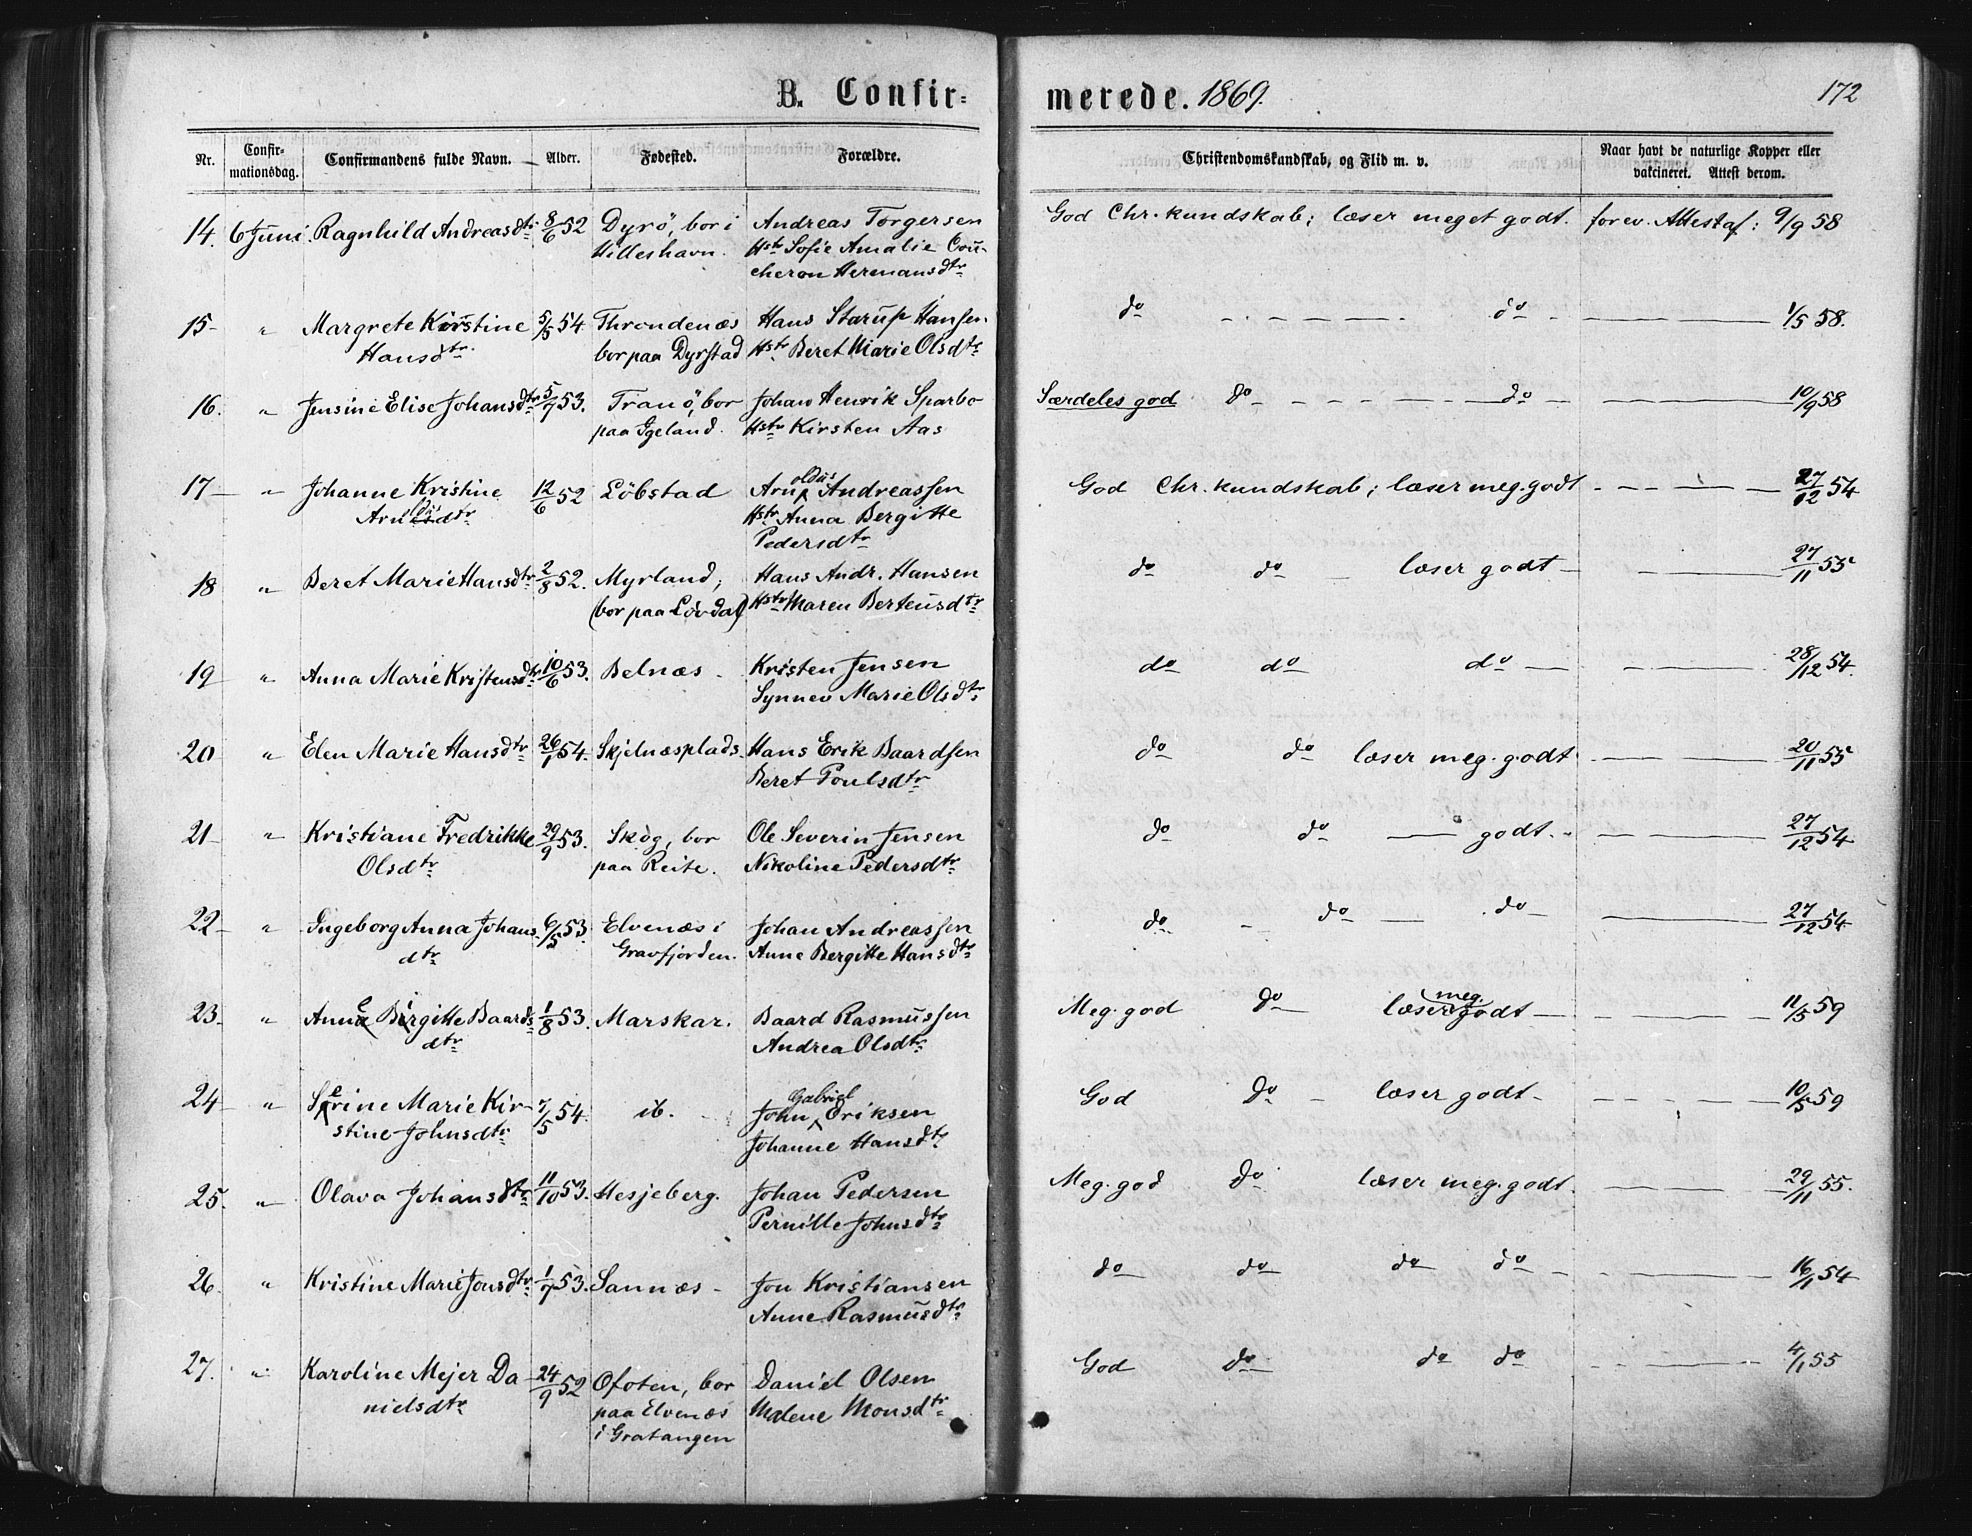 B. Confir-
merede. 1869.
172
Nr.
Confir-
mationsdag.
Confirmandens fulde Navn.
Alder.
Fødested.
Forældre.
Christendomskundskab, og Flid m. v.
Naar havt de naturlige Kopper eller
vakcineret. Attest derom.
14. 6 Juni. Ragnhild Andreasdtr 8/6 52 Dyrö, bor i Andreas Torgersen God Chr. kundskab; læser meget godt. forev. Attest af: 9/9 58
Hilleshavn. Hstr Sofie Amalie Cou-
cheron Hermansdtr
15 - " Margrete Kirstine 5/5 54 Throndenæs Hans Starup Hansen. do - - - - do - 1/5 58.
Hansdtr. bor paa Dyrstad Hstr Beret Marie Olsdtr
16. " Jensine Elise Johansdtr 5/7 53. Tranö, bor Johan Henrik Sparbo Særdeles god do - - - - do - 10/9 58
paa Igeland. Hstr Kirsten Aas
17 - " Johanne Kristine 12/6 52 Löbstad Arnoldus Andreassen God Chr. kundskab; læser meg. godt - - - - 27/12 54
Arnoldusdtr Hstr Anna Bergitte
Pedersdtr
18 " Beret Marie Hansdtr 2/8 52. Myrland; Hans Andr. Hansen do do - læser godt - 27/11 55
(bor paa Lövdal) Hstr Maren Berteusdtr
19 - " Anna Marie Kristensdtr 10/6 53. Belnæs - Kristen Jensen do do do - 28/12 54.
Synnev Marie Olsdtr
20 " Elen Marie Hansdtr 26/1 54. Skjelnæsplads. Hans Erik Baardsen do do læser meg. godt - 20/11 55
Beret Poulsdtr
21 - " Kristiane Fredrikke 29/9 53. Skog, bor Ole Severin Jensen do do - godt. - 27/12 54
Olsdtr paa Reite. Nikoline Pedersdtr
22 - " Ingeborg Anna Johans- 6/5 53. Elvenæs i Johan Andreassen do - do - do - 27/12 54
dtr Gravfjorden. Anne Bergitte Hansdtr
23. " Anne Birgitte Baards 1/8 53. Marskar. Baard Rasmussen Meg. god do læser meg. godt - 11/5 59
dtr Andrea Olsdtr
24 - " Serine Marie Kir- 7/5 54. ib. John Gabriel Eriksen God do - læser godt - 10/5 59
stine Johnsdtr Johanne Hansdtr
25. " Olava Johansdtr 11/10 53. Hesjeberg. Johan Pedersen Meg. god do læser meg. godt. 29/11 55.
Pernille Johnsdtr
26. " Kristine Marie Jonsdtr 1/7 53. Sannæs - Jon Kristiansen do do do do - 16/1 54
Anne Rasmusdtr
27. " Karoline Mejer Da- 24/9 52 Ofoten, bor Daniel Olsen God do do do - 4/1 55
nielsdtr paa Elvenæs Malene Monsdtr
i Gratangen